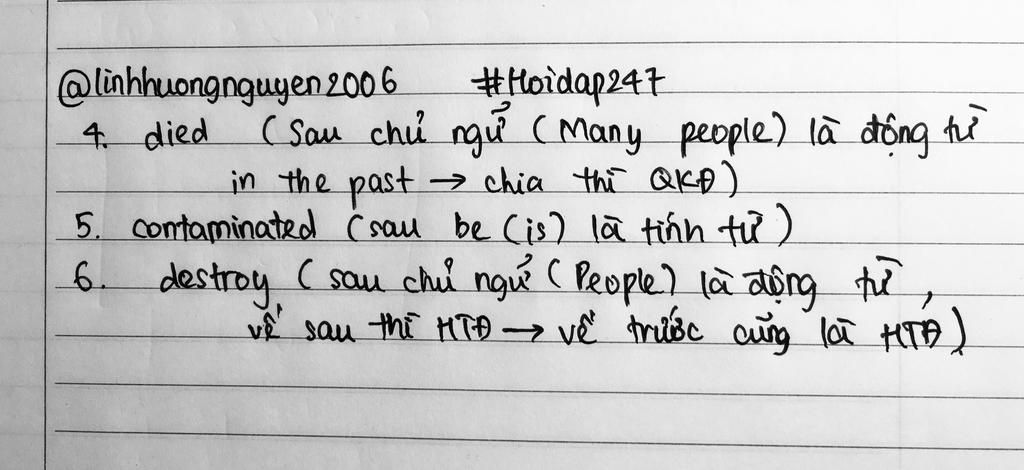 @linhhuongnguyen2006 #Hoidap247
4. died (Sau chủ ngữ (Many people) là động từ
in the past → chia thì QKĐ)
5. contaminated (sau be (is) là tính từ)
6. destroy (sau chủ ngữ (People) là động từ,
vế sau thì HTĐ → vế trước cũng là HTĐ)